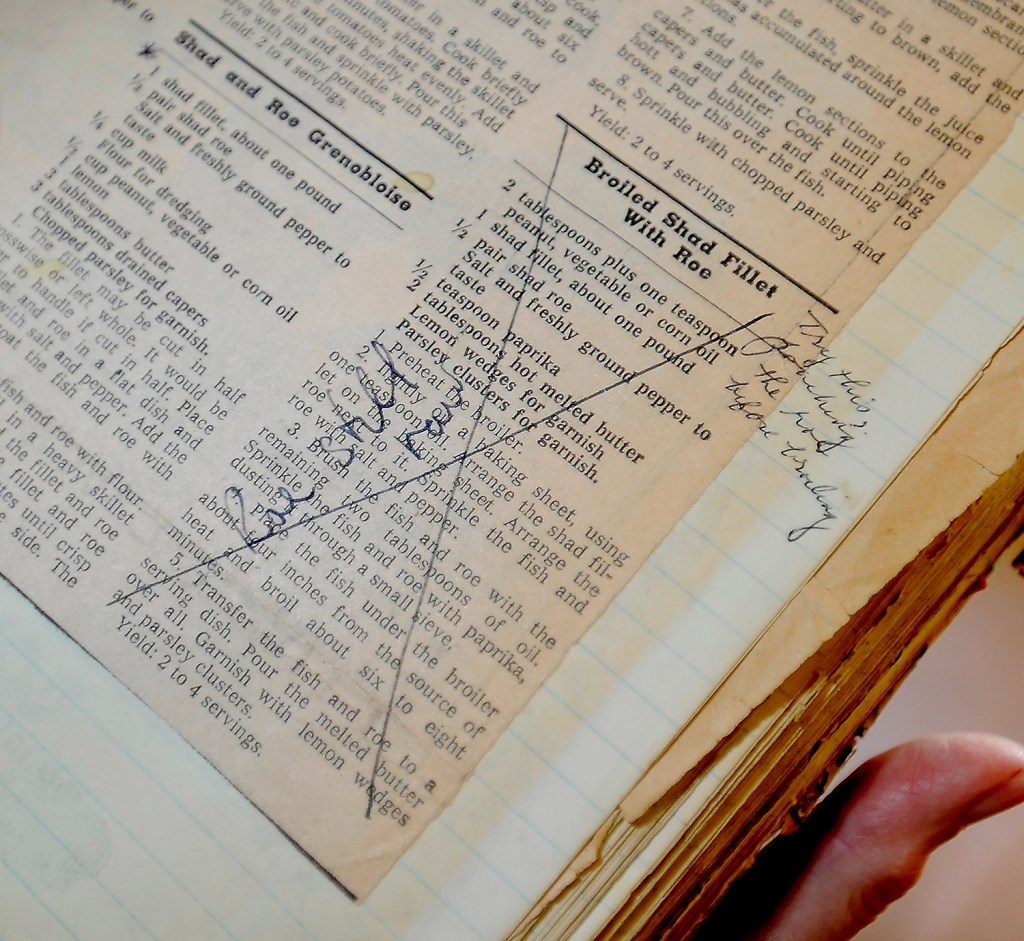 er to
in a skillet and
tomatoes. Cook briefly
minutes, shaking the skillet
tomatoes heat evenly. Add
and cook briefly. Pour this
the fish and sprinkle with parsley.
rve with parsley potatoes.
Yield: 2 to 4 servings.
Shad and Roe Grenobloise
1 shad fillet, about one pound
½ pair shad roe
Salt and freshly ground pepper to
taste
¼ cup milk
Flour for dredging
½ cup peanut, vegetable or corn oil
1 lemon
3 tablespoons butter
3 tablespoons drained capers
Chopped parsley for garnish.
1. The fillet may be cut in half
crosswise or left whole. It would be
to handle if cut in half. Place
and roe in a flat dish and
with salt and pepper. Add the
oat the fish and roe with
fish and roe with flour
in a heavy skillet
the fillet and roe
fillet and roe
tes until crisp
e side. The
Cook,
and
about six
and roe to
in a skillet and
to brown, add the
the fish, sprinkle the juice
as accumulated around the lemon
7. Add the lemon sections to the
capers and butter. Cook until piping
hot and bubbling and starting to
brown. Pour this over the fish.
8. Sprinkle with chopped parsley and
serve.
Yield: 2 to 4 servings.
Broiled Shad Fillet
With Roe
2 tablespoons plus one teaspoon
peanut, vegetable or corn oil
1 shad fillet, about one pound
½ pair shad roe
Salt and freshly ground pepper to
taste
½ teaspoon paprika
2 tablespoons hot melted butter
Lemon wedges for garnish
Parsley clusters for garnish.
1. Preheat the broiler.
2. arrange the shad fil-
let on a baking sheet, using
one teaspoon sheet. Arrange the
roe next to it. Sprinkle the fish and
roe with salt and pepper.
3. Brush the fish and roe with the
remaining two tablespoons of oil.
Sprinkle the fish and roe with paprika,
dusting through a small sieve.
Place the fish under the broiler
about four inches from the source of
heat and broil about six to eight
minutes.
5. Transfer the fish and roe to a
serving dish. Pour the melted butter
over all. Garnish with lemon wedges
and parsley clusters.
Yield: 2 to 4 servings.
Roe still
raw
Try this
poaching
the roe
before broiling